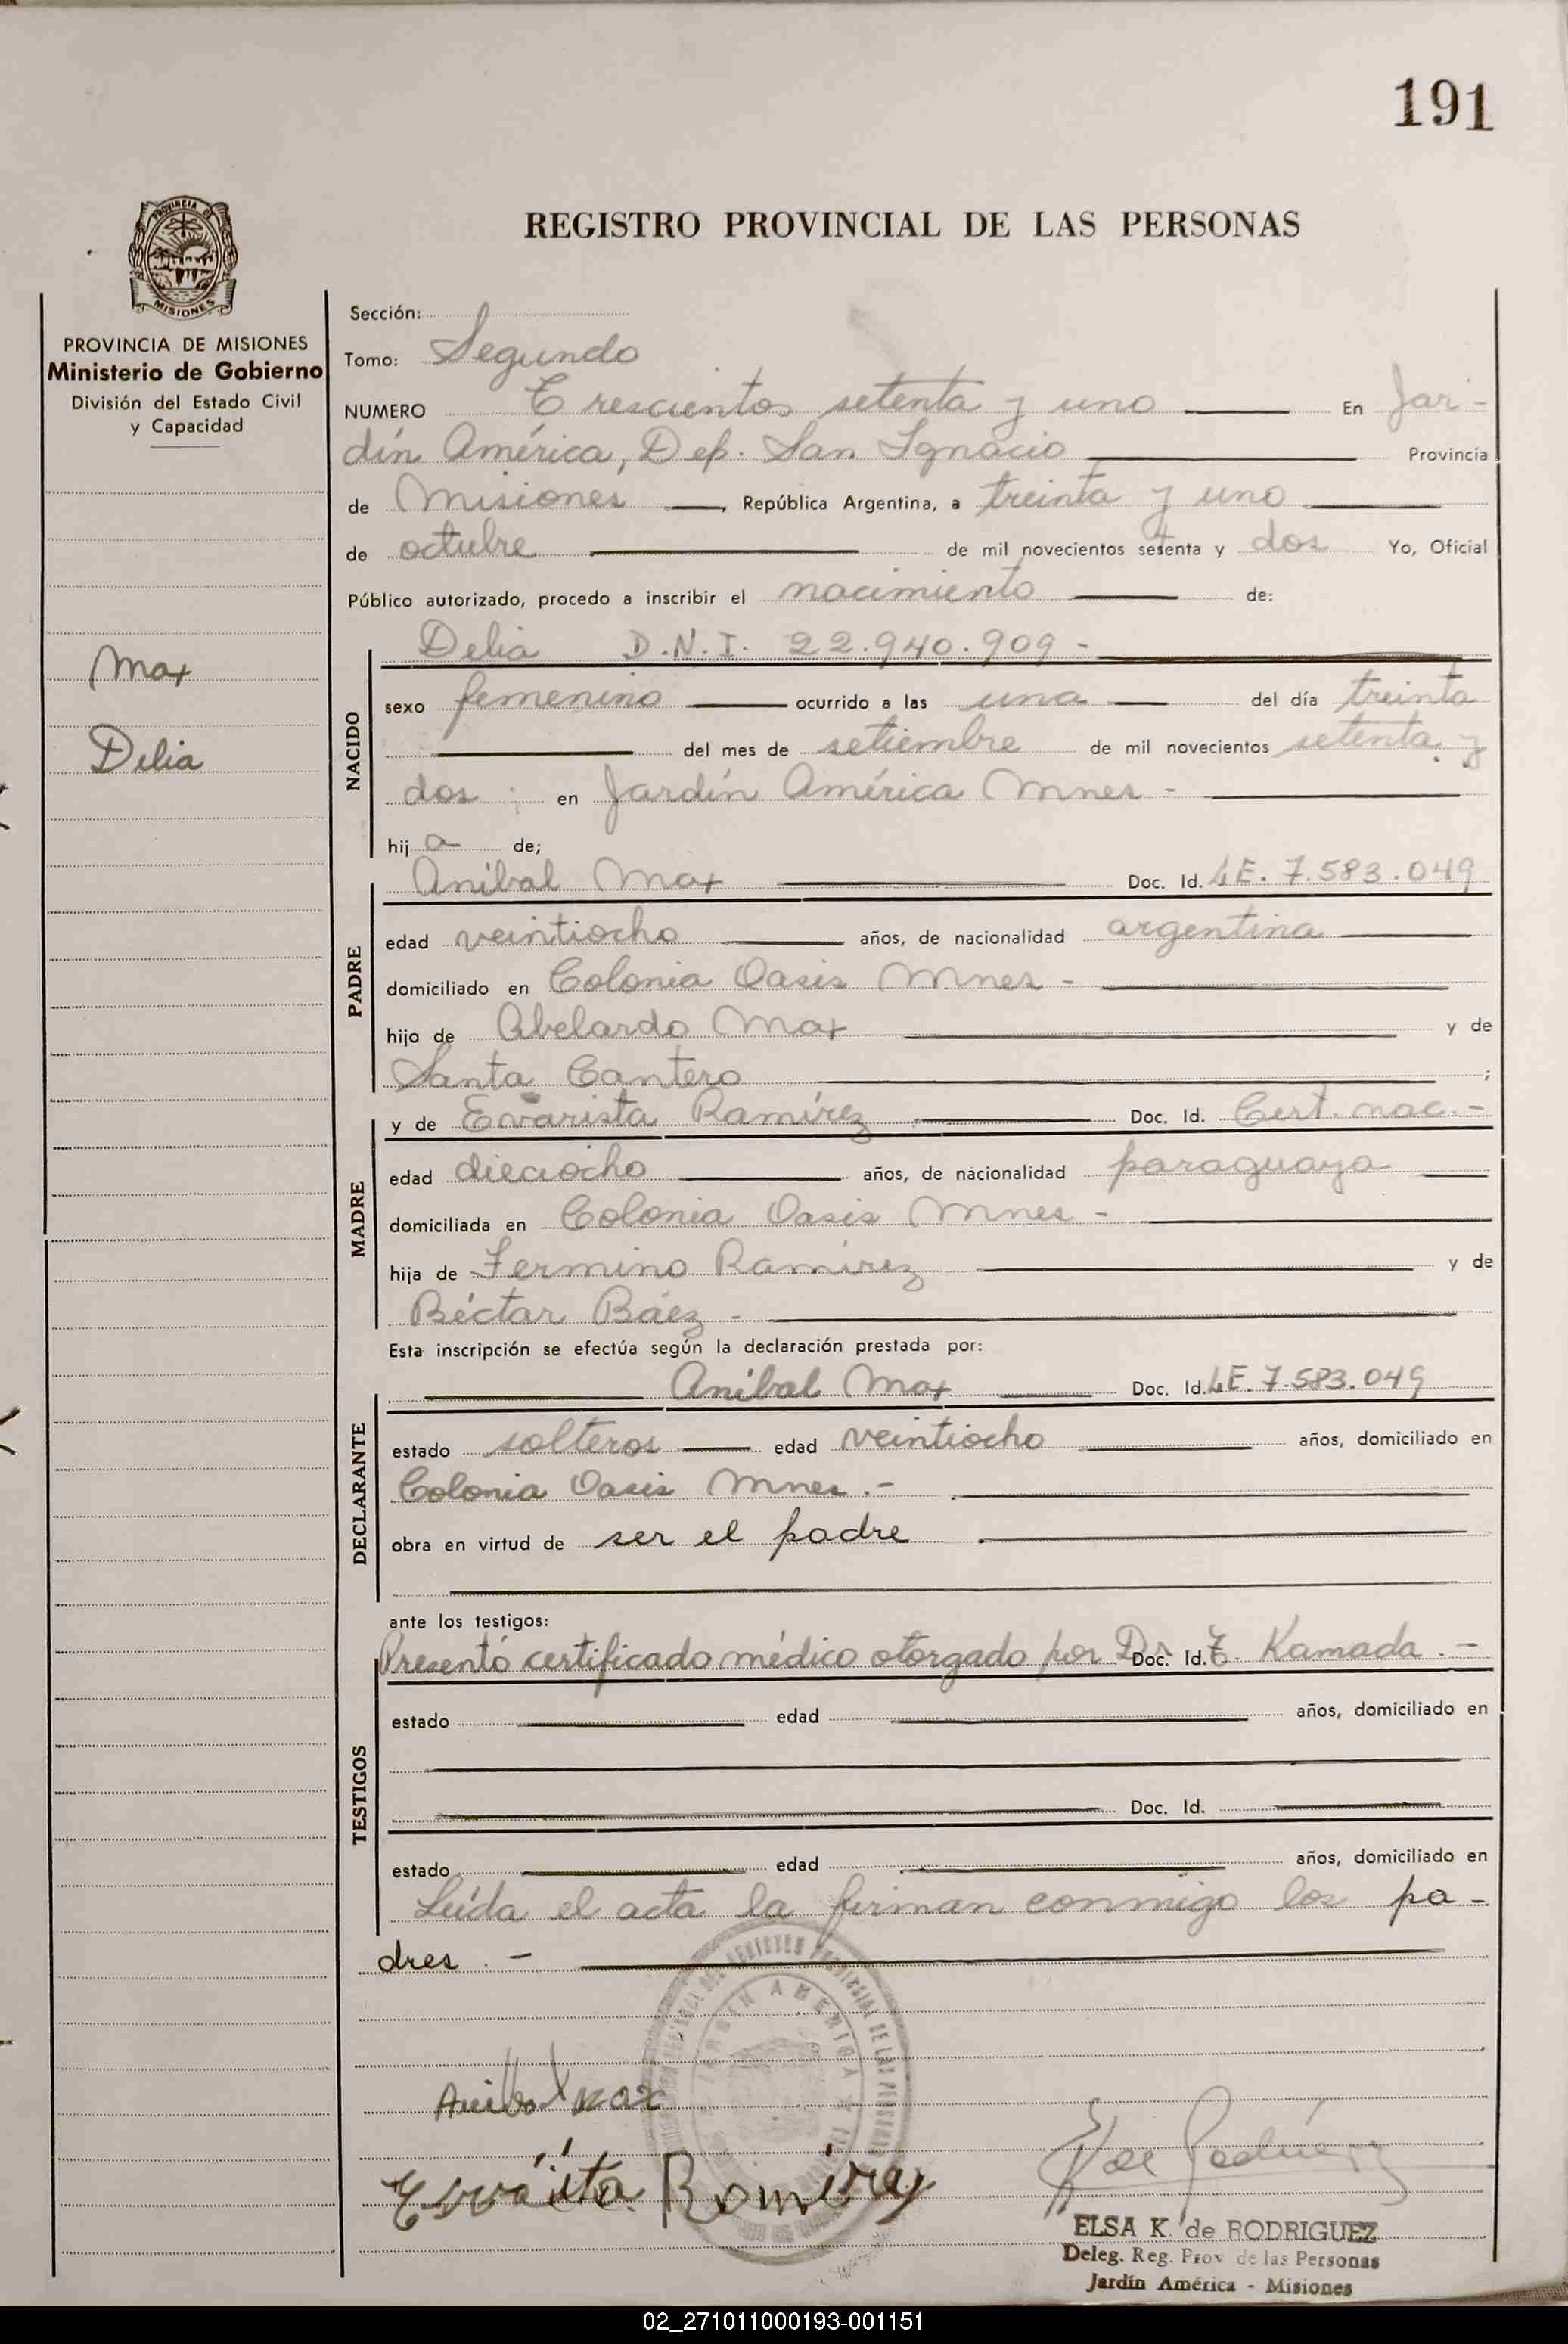 191
REGISTRO PROVINCIAL DE LAS PERSONAS
PROVINCIA DE MISIONES
Ministerio de Gobierno
División del Estado Civil
y Capacidad
Max
Delia
Sección:
Tomo: Segundo
NUMERO Trescientos setenta y uno En Jar-
dín América, Dep. San Ignacio Provincia
de Misiones, República Argentina, a treinta y uno
de octubre de mil novecientos setenta y dos Yo, Oficial
Público autorizado, procedo a inscribir el nacimiento de:
Delia D.N.I. 22.940.909-
NACIDO
sexo femenino ocurrido a las una del día treinta
del mes de setiembre de mil novecientos setenta y
dos; en Jardín América Mnes -
hija de;
Aníbal Max Doc. Id. LE. 7.583.049
PADRE
edad veintiocho años, de nacionalidad argentina
domiciliado en Colonia Oasis Mnes -
hijo de Abelardo Max y de
Santa Cantero ;
y de Evarista Ramírez Doc. Id. Cert. nac. -
MADRE
edad dieciocho años, de nacionalidad paraguaya
domiciliada en Colonia Oasis Mnes -
hija de Fermino Ramírez y de
Béctar Báez -
Esta inscripción se efectúa según la declaración prestada por:
Aníbal Max Doc. Id. LE. 7.583.049
DECLARANTE
estado solteros edad veintiocho años, domiciliado en
Colonia Oasis Mnes. -
obra en virtud de ser el padre
ante los testigos:
Presentó certificado médico otorgado por Dr. Doc. Id. T. Kamada. -
TESTIGOS
estado edad años, domiciliado en
Doc. Id.
estado edad años, domiciliado en
Leída el acta la firman conmigo los pa-
dres. -
JARDIN AMERICA
Anibal Max
Evarista Ramirez
ELSA K. de RODRIGUEZ
Deleg. Reg. Prov de las Personas
Jardín América - Misiones
02_271011000193-001151